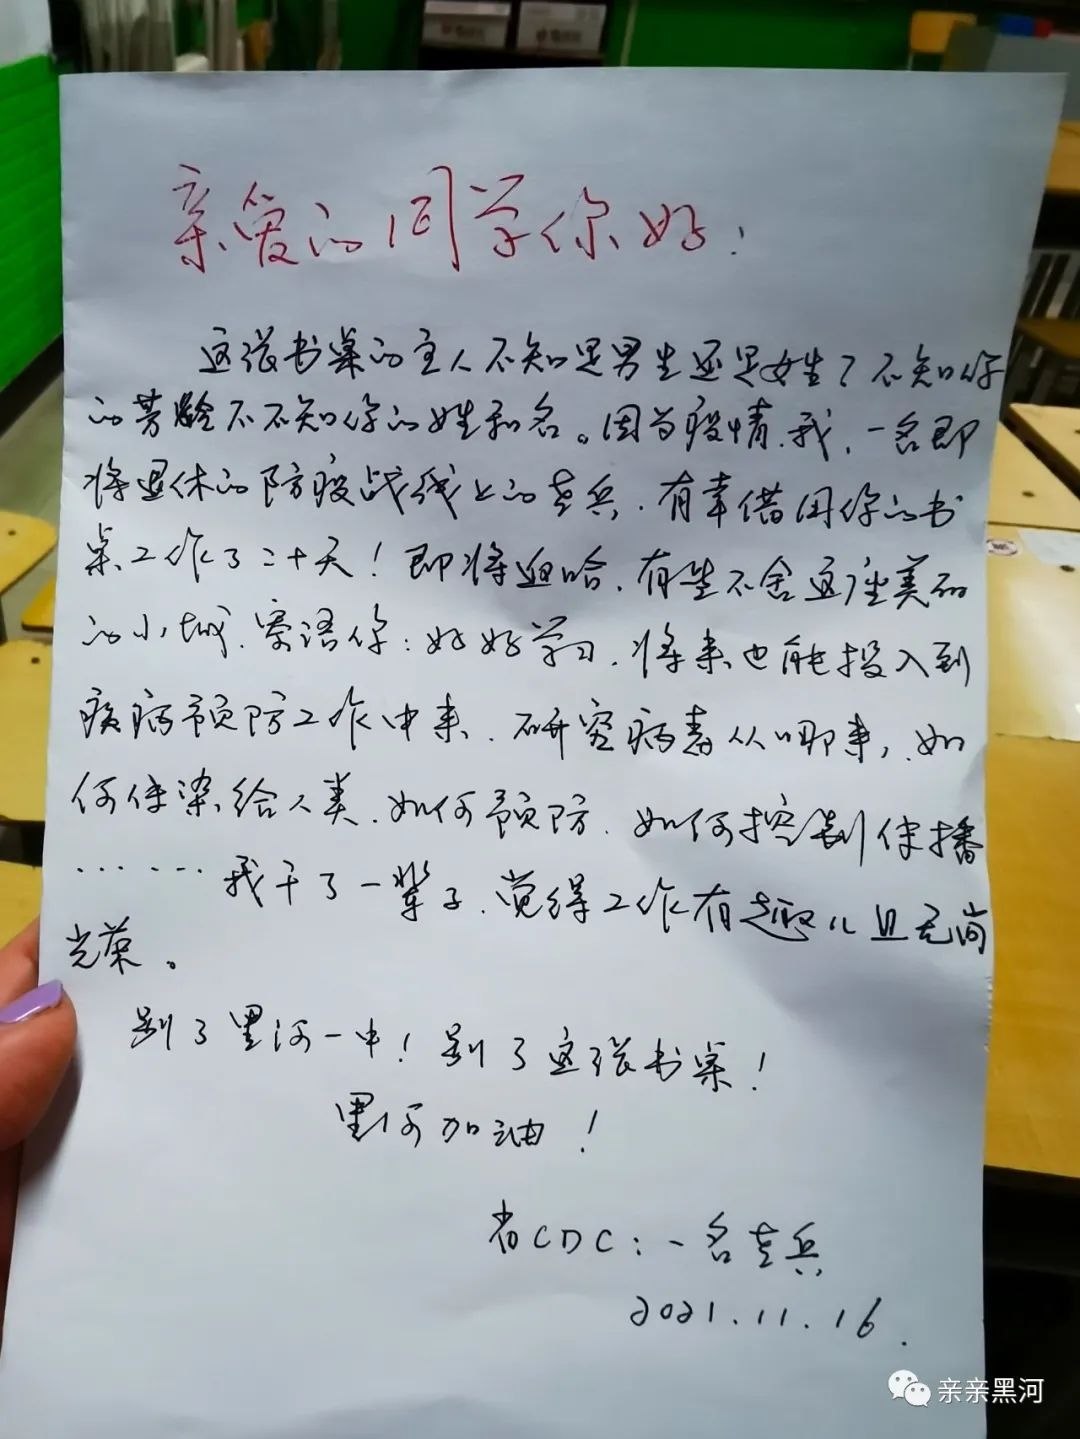 亲爱的同学你好:
这张书桌的主人不知是男生还是女生?不知你
的芳龄更不知你的姓和名。因为疫情,我,一名即
将退休的防疫战线上的老兵,有幸借用你的书
桌工作了二十天!即将返哈,有些不舍这座美丽
的小城,寄语你:好好学习,将来也能投入到
疾病预防工作中来,研究病毒从哪来,如
何传染给人类,如何预防,如何控制传播
……我干了一辈子,觉得工作有趣儿且无尚
光荣。
别了黑河一中!别了这张书桌!
黑河加油!
省CDC:一名老兵
2021.11.16.
亲亲黑河